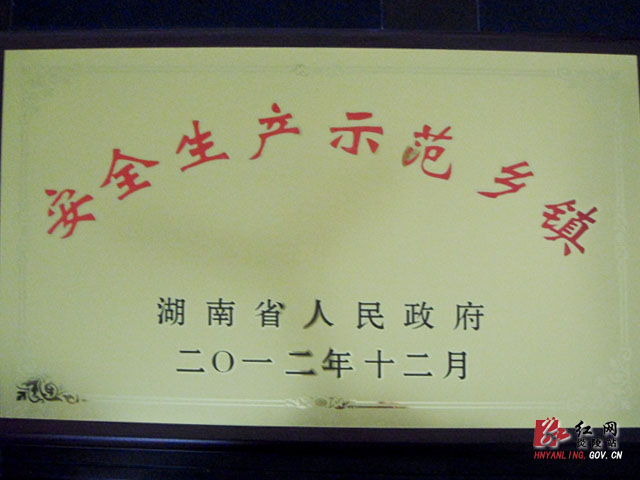 安全生产示范乡镇
湖南省人民政府
二〇一二年十二月
红网
炎陵站
HNYANLING.GOV.CN